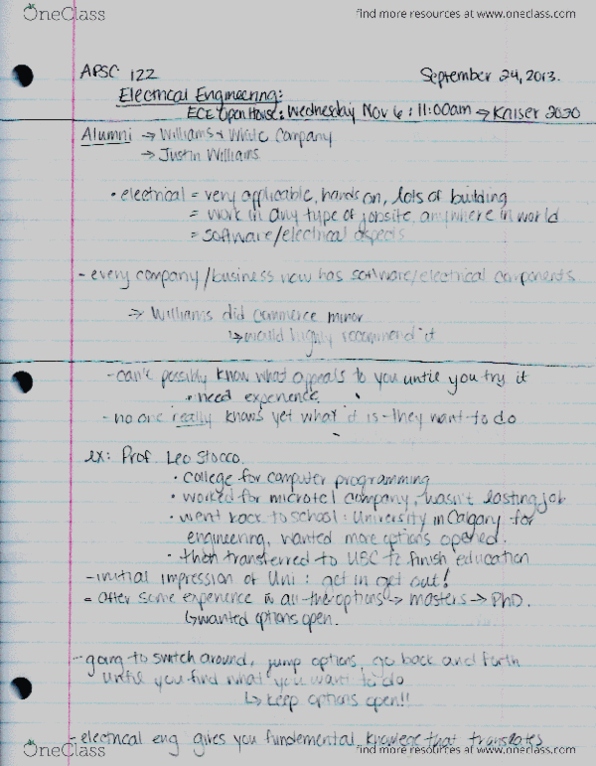 OneClass find more resources at www.oneclass.com
APSC 122 September 24, 2013.
Electrical Engineering:
ECE Open House: Wednesday Nov 6: 11:00am → Kaiser 2020
Alumni → Williams + Company
→ Justin Williams
• electrical = very applicable, hands on, lots of building
= work in any type of jobsite, anywhere in world
= software/electrical aspects
- every company/business now has software/electrical components
⇒ Williams did commerce minor
↳ would highly recommend it
- can't possibly know what appeals to you until you try it
• need experience.
- no one really knows yet what it is - they want to do
ex: Prof. Leo Stocco.
• college for computer programming
• worked for microtel company, wasn't lasting job
• went back to school: University in Calgary for
engineering, wanted more options opened.
• then transferred to UBC to finish education
- initial impression of Uni: get in get out!
= after some experience in all the options → masters → PhD.
↳ wanted options open.
- going to switch around, jump options, go back and forth
until you find what you want to do
↳ keep options open!!
- electrical eng gives you fundemental knowlege that translates
OneClass find more resources at www.oneclass.com